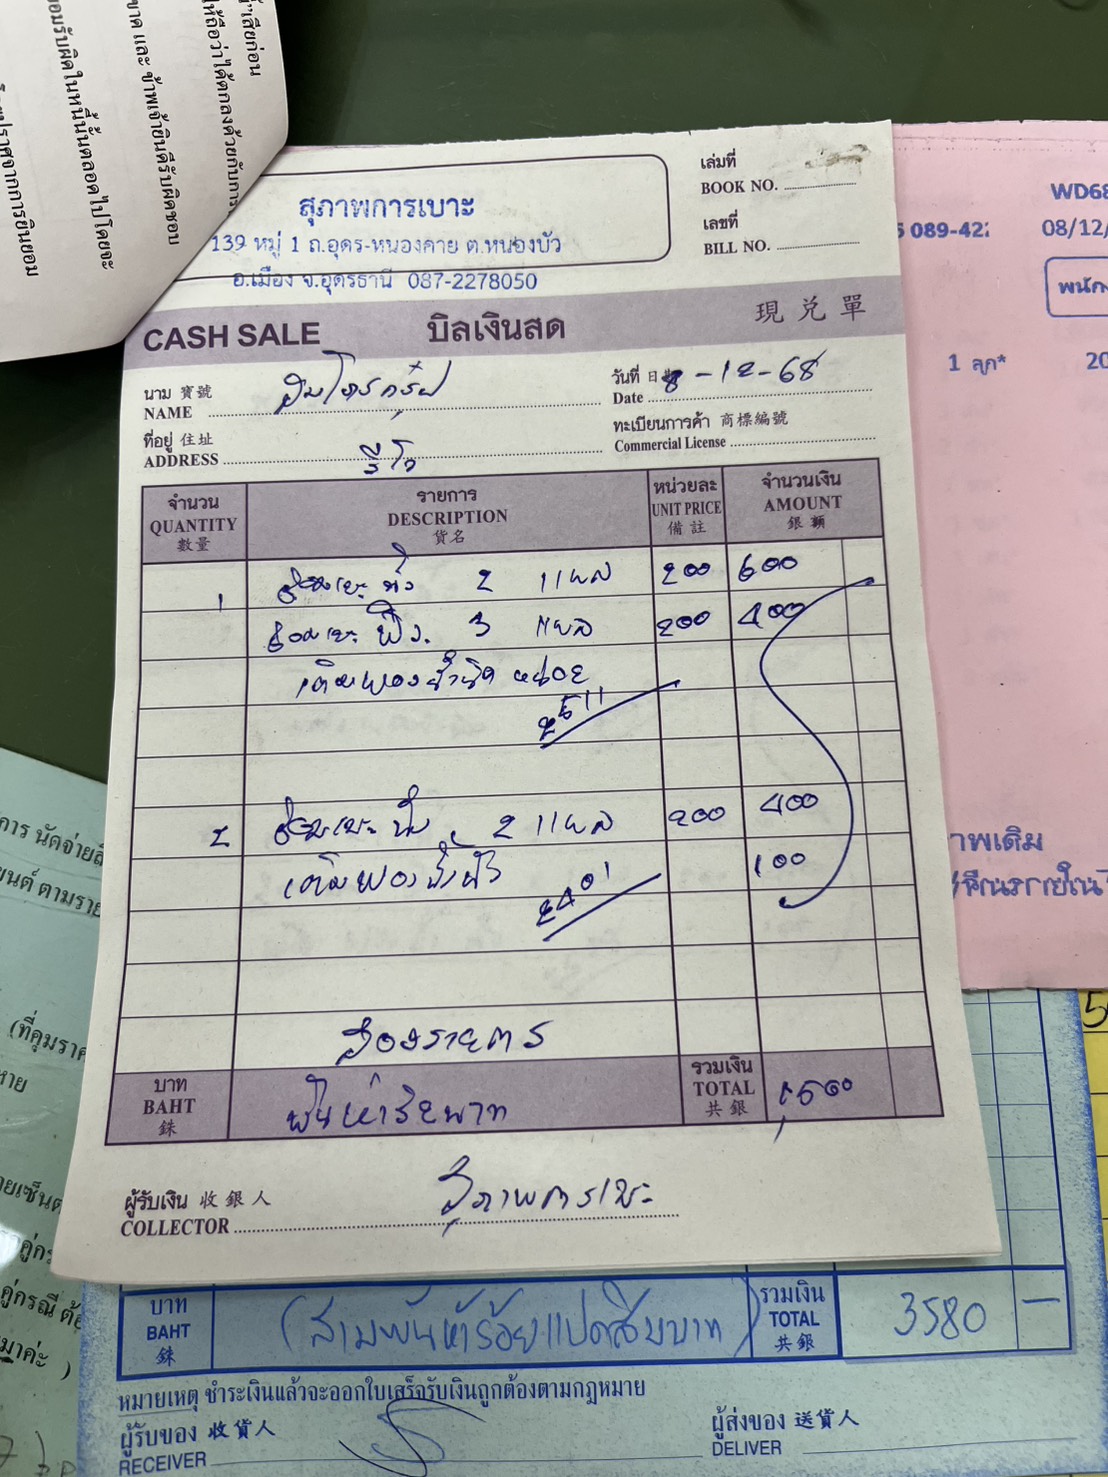 "เสียก่อน
ให้ถือว่าได้ตกลงด้วยกับการ
ขาด และ ข้าพเจ้ายินดีรับผิดชอบ
ยอมรับผิดในหนี้นั้นตลอดไปโดยจะ
โดยปราศจากการยินยอม
สุภาพการเบาะ
139 หมู่ 1 ถ.อุดร-หนองคาย ต.หนองบัว
อ.เมือง จ.อุดรธานี 087-2278050
เล่มที่
BOOK NO.
เลขที่
BILL NO.
CASH SALE บิลเงินสด 現兑單
นาม 寶號
NAME
วันที่ 日期 8-12-68
Date
ที่อยู่ 住址
ADDRESS รีโว่
ทะเบียนการค้า 商標編號
Commercial License
จำนวน รายการ หน่วยละ จำนวนเงิน
QUANTITY DESCRIPTION UNIT PRICE AMOUNT
數量 貨名 備註 銀額
1 ซ่อมเบาะ 2 แผล 200 600
ซ่อมเบาะ 3 แผล 200 400
เติมฟองน้ำนิดหน่อย
2511
2 ซ่อมเบาะ 2 แผล 200 400
เติมฟองน้ำ 100
2401
สองรายการ
บาท
BAHT
銖
พันห้าร้อยบาท
รวมเงิน
TOTAL
共銀
1,500
ผู้รับเงิน 收銀人
COLLECTOR สุภาพการเบาะ
WD68
089-422
08/12/
พนักง
1 ลูก*
20
าพเดิม
การ นัดจ่าย
ยนต์ ตามราย
(ที่คุมราค
หาย
บาท
BAHT
銖
(สามพันห้าร้อยแปดสิบบาท)
รวมเงิน
TOTAL
共銀
3580 —
หมายเหตุ ชำระเงินแล้วจะออกใบเสร็จรับเงินถูกต้องตามกฎหมาย
ผู้รับของ 收貨人
RECEIVER
ผู้ส่งของ 送貨人
DELIVER
คู่กรณี ต้อ
มาค่ะ )